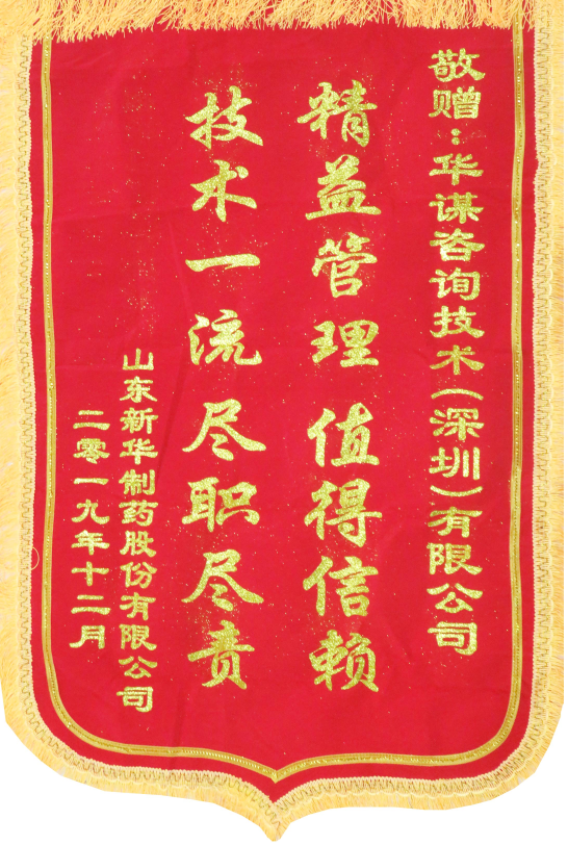 敬赠：华谋咨询技术（深圳）有限公司
精益管理 值得信赖
技术一流 尽职尽责
山东新华制药股份有限公司
二零一九年十二月